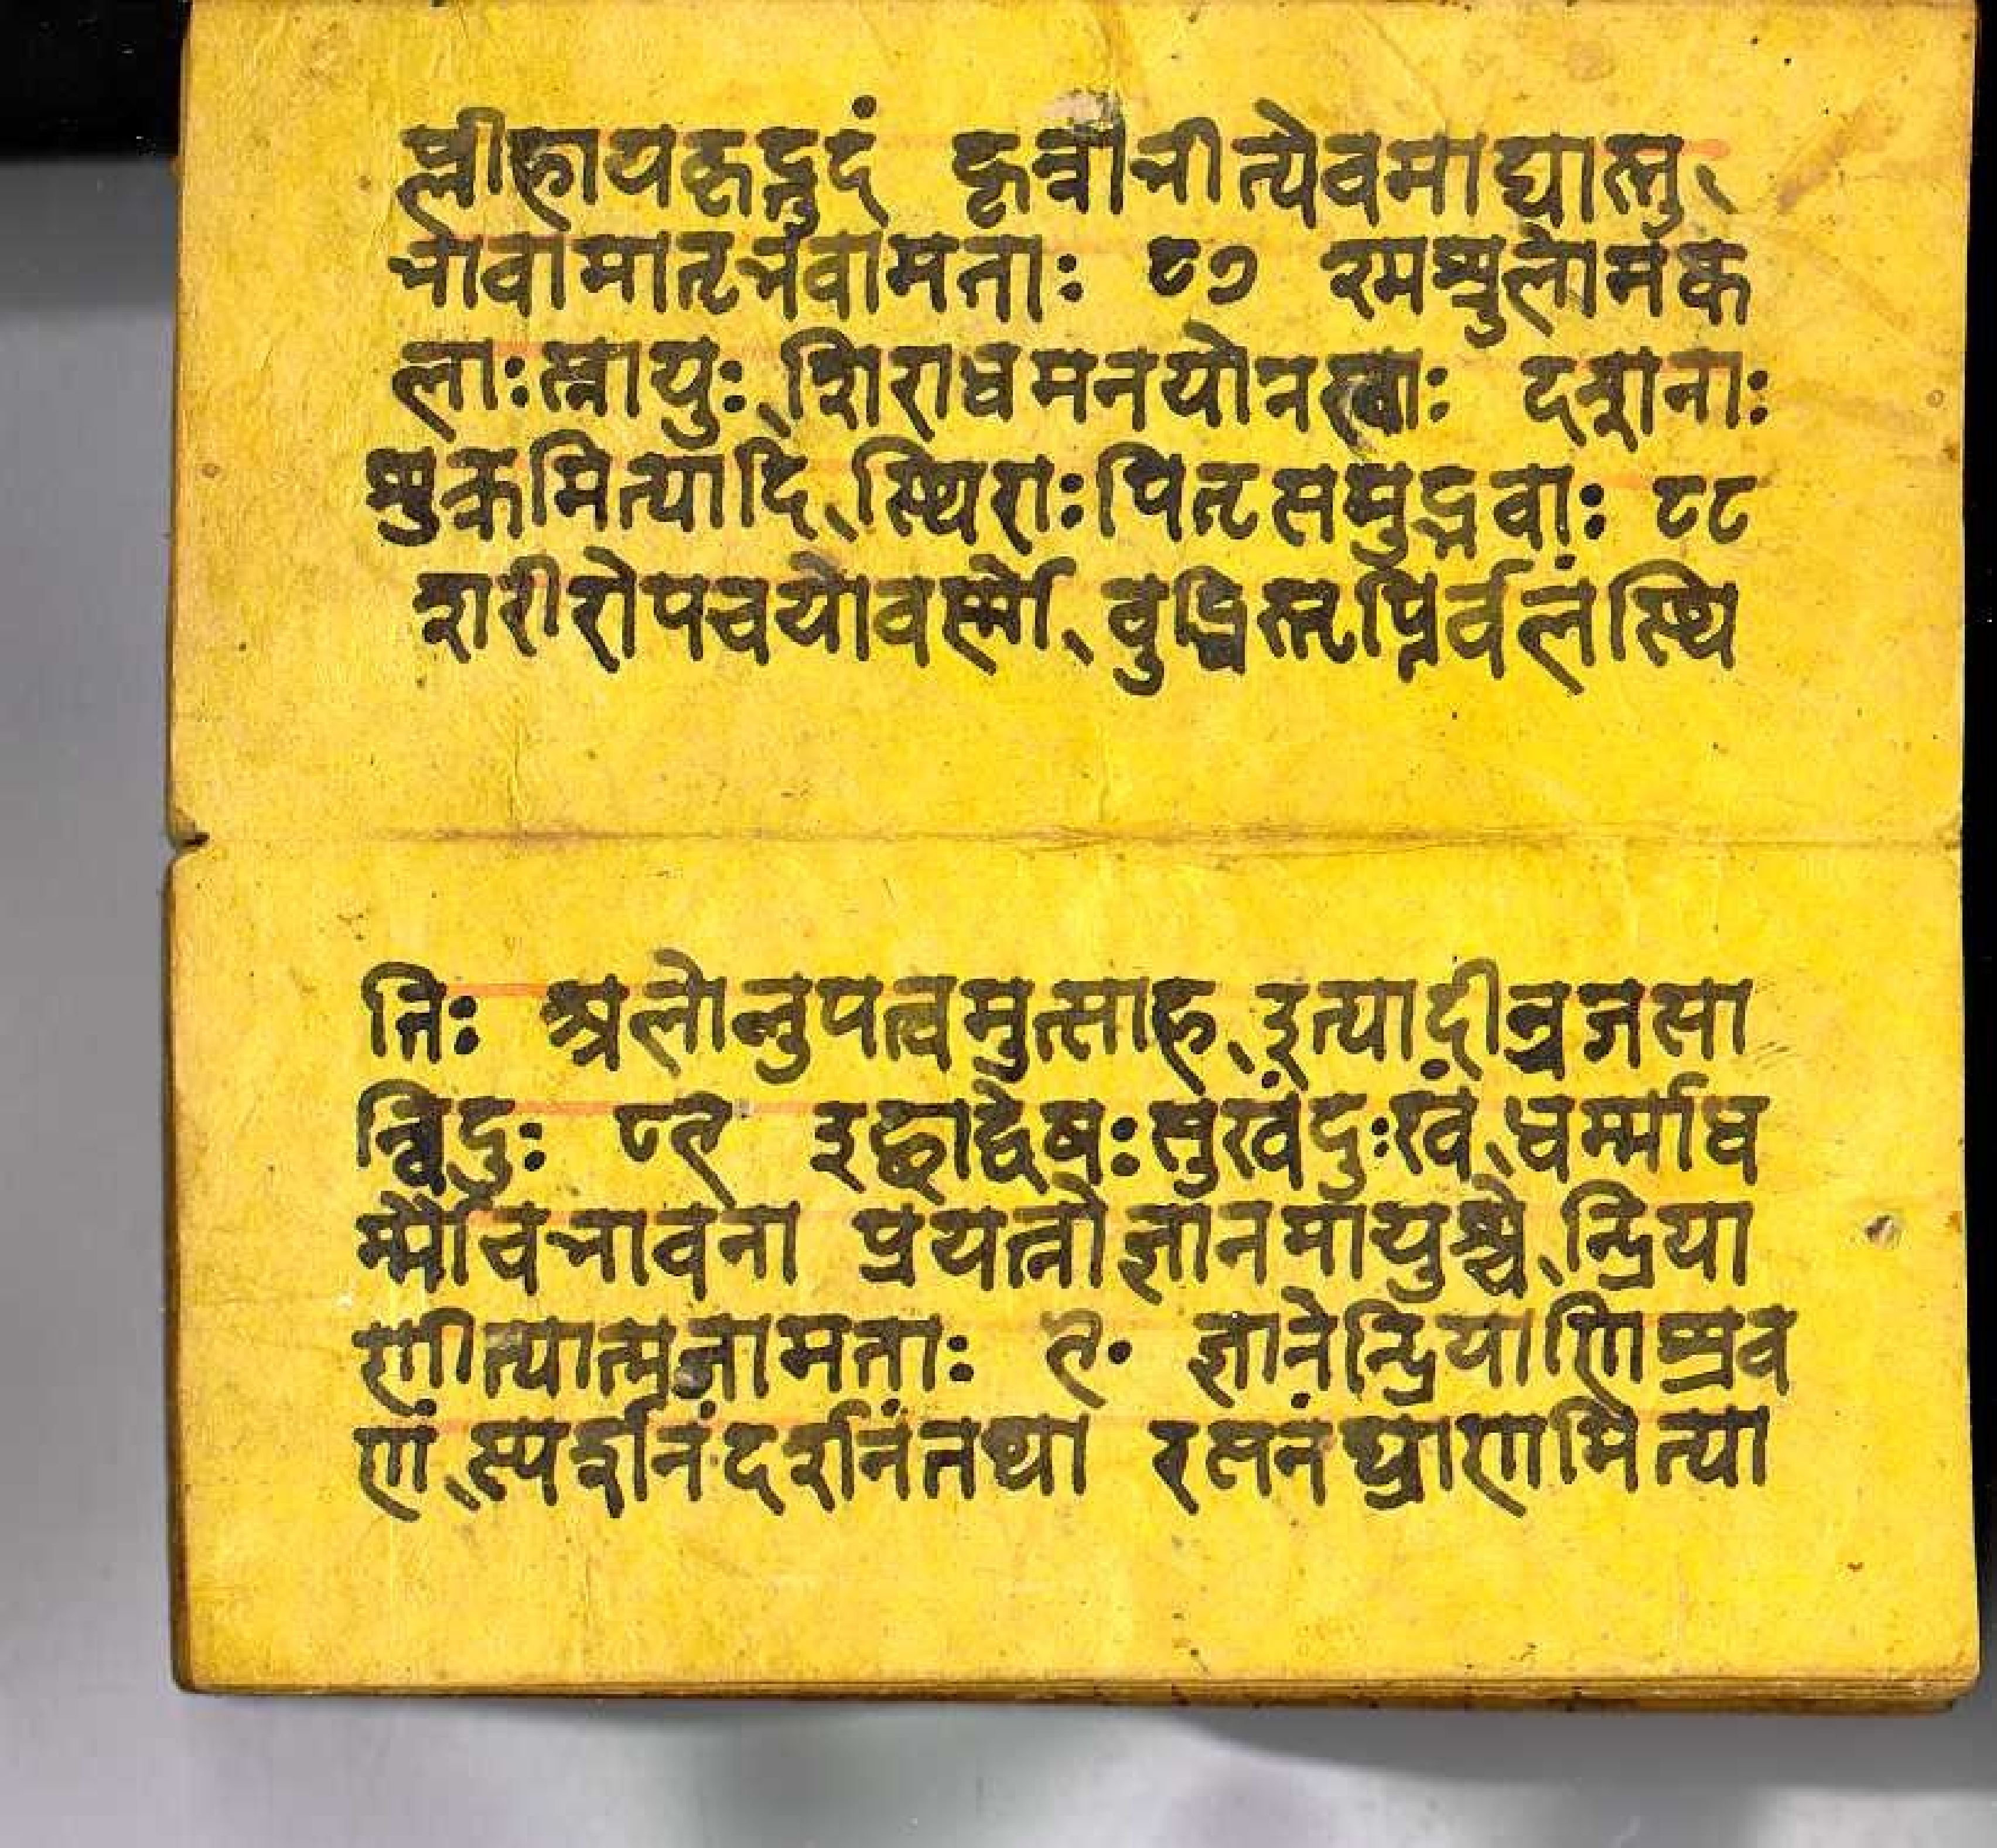 प्लीहायकृद्गुदं हृन्नाभीत्येवमाद्यास्तु
भावामातृभवामताः ८७ श्मश्रुलोमक
लाःस्नायुः शिराधमनयोनखाः दशनाः
शुक्रमित्यादि स्थिराःपितृसमुद्भवाः ८८
शरीरोपचयोवर्ण्णो वृद्धिस्तृप्तिर्वलंस्थि
तिः अलोलुपत्वमुत्साह इत्यादीन्रजसा
न्विदुः ८९ इच्छाद्वेषःसुखंदुःखं धर्म्माध
र्म्मौचभावना प्रयत्नोज्ञानमायुश्चे न्द्रिया
णीत्यात्मजामताः ९० ज्ञानेन्द्रियाणिश्रव
णं स्पर्शनंदर्शनंतथा रसनंघ्राणमित्या